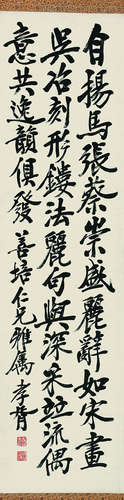 自揚馬張蔡崇盛麗辭如宋畫
吳冶刻形鏤法麗句與深采竝流偶
意共逸韻俱發 善培仁兄雅屬 孝胥